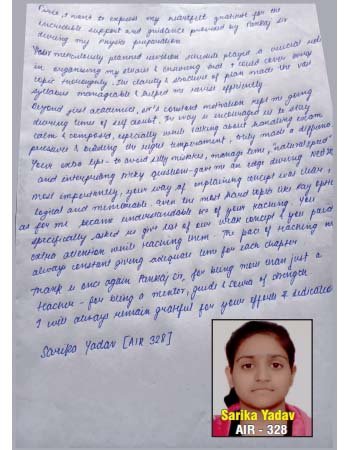 First, I want to express my heartfelt gratitude for the
incredible support and guidance provided by Pankaj Sir
during my Physics preparation.
Your meticulously planned revision schedule played a crucial role
in organising my studies & ensuring that I could cover every
topic thoroughly. The clarity & structure of plan made the vast
syllabus manageable & helped me revise efficiently.
Beyond just academics, sir's constant motivation kept me going
during times of self doubt. The way he encouraged us to stay
calm & composed, especially while talking about handling exam
pressure & building the right temperament, truly made a difference
Your extra tips - to avoid silly mistakes, manage time,
and interpreting tricky question - gave me an edge during NEET
most importantly, your way of explaining concept was clear,
logical and memorable. Even the most hard topics like ray optics
as for me became understandable bcz of your teaching. You
specifically asked us give list of our weak concept & you paid
extra attention while teaching them. The pace of teaching was
always constant giving adequate time for each chapter
Thank u once again Pankaj Sir, for being more than just a
teacher - for being a mentor, guide & source of strength
I will always remain grateful for your efforts & dedication
Sarika Yadav [AIR 328]
Sarika Yadav
AIR - 328